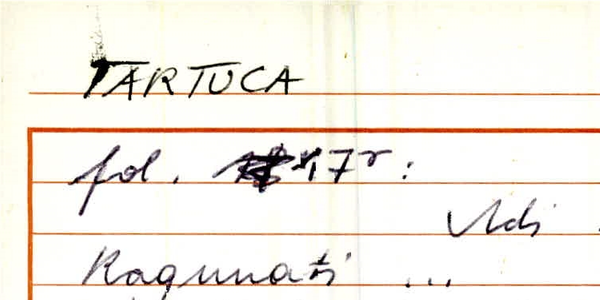 TARTUCA
fol. 17r:
Adi
Ragunati ...